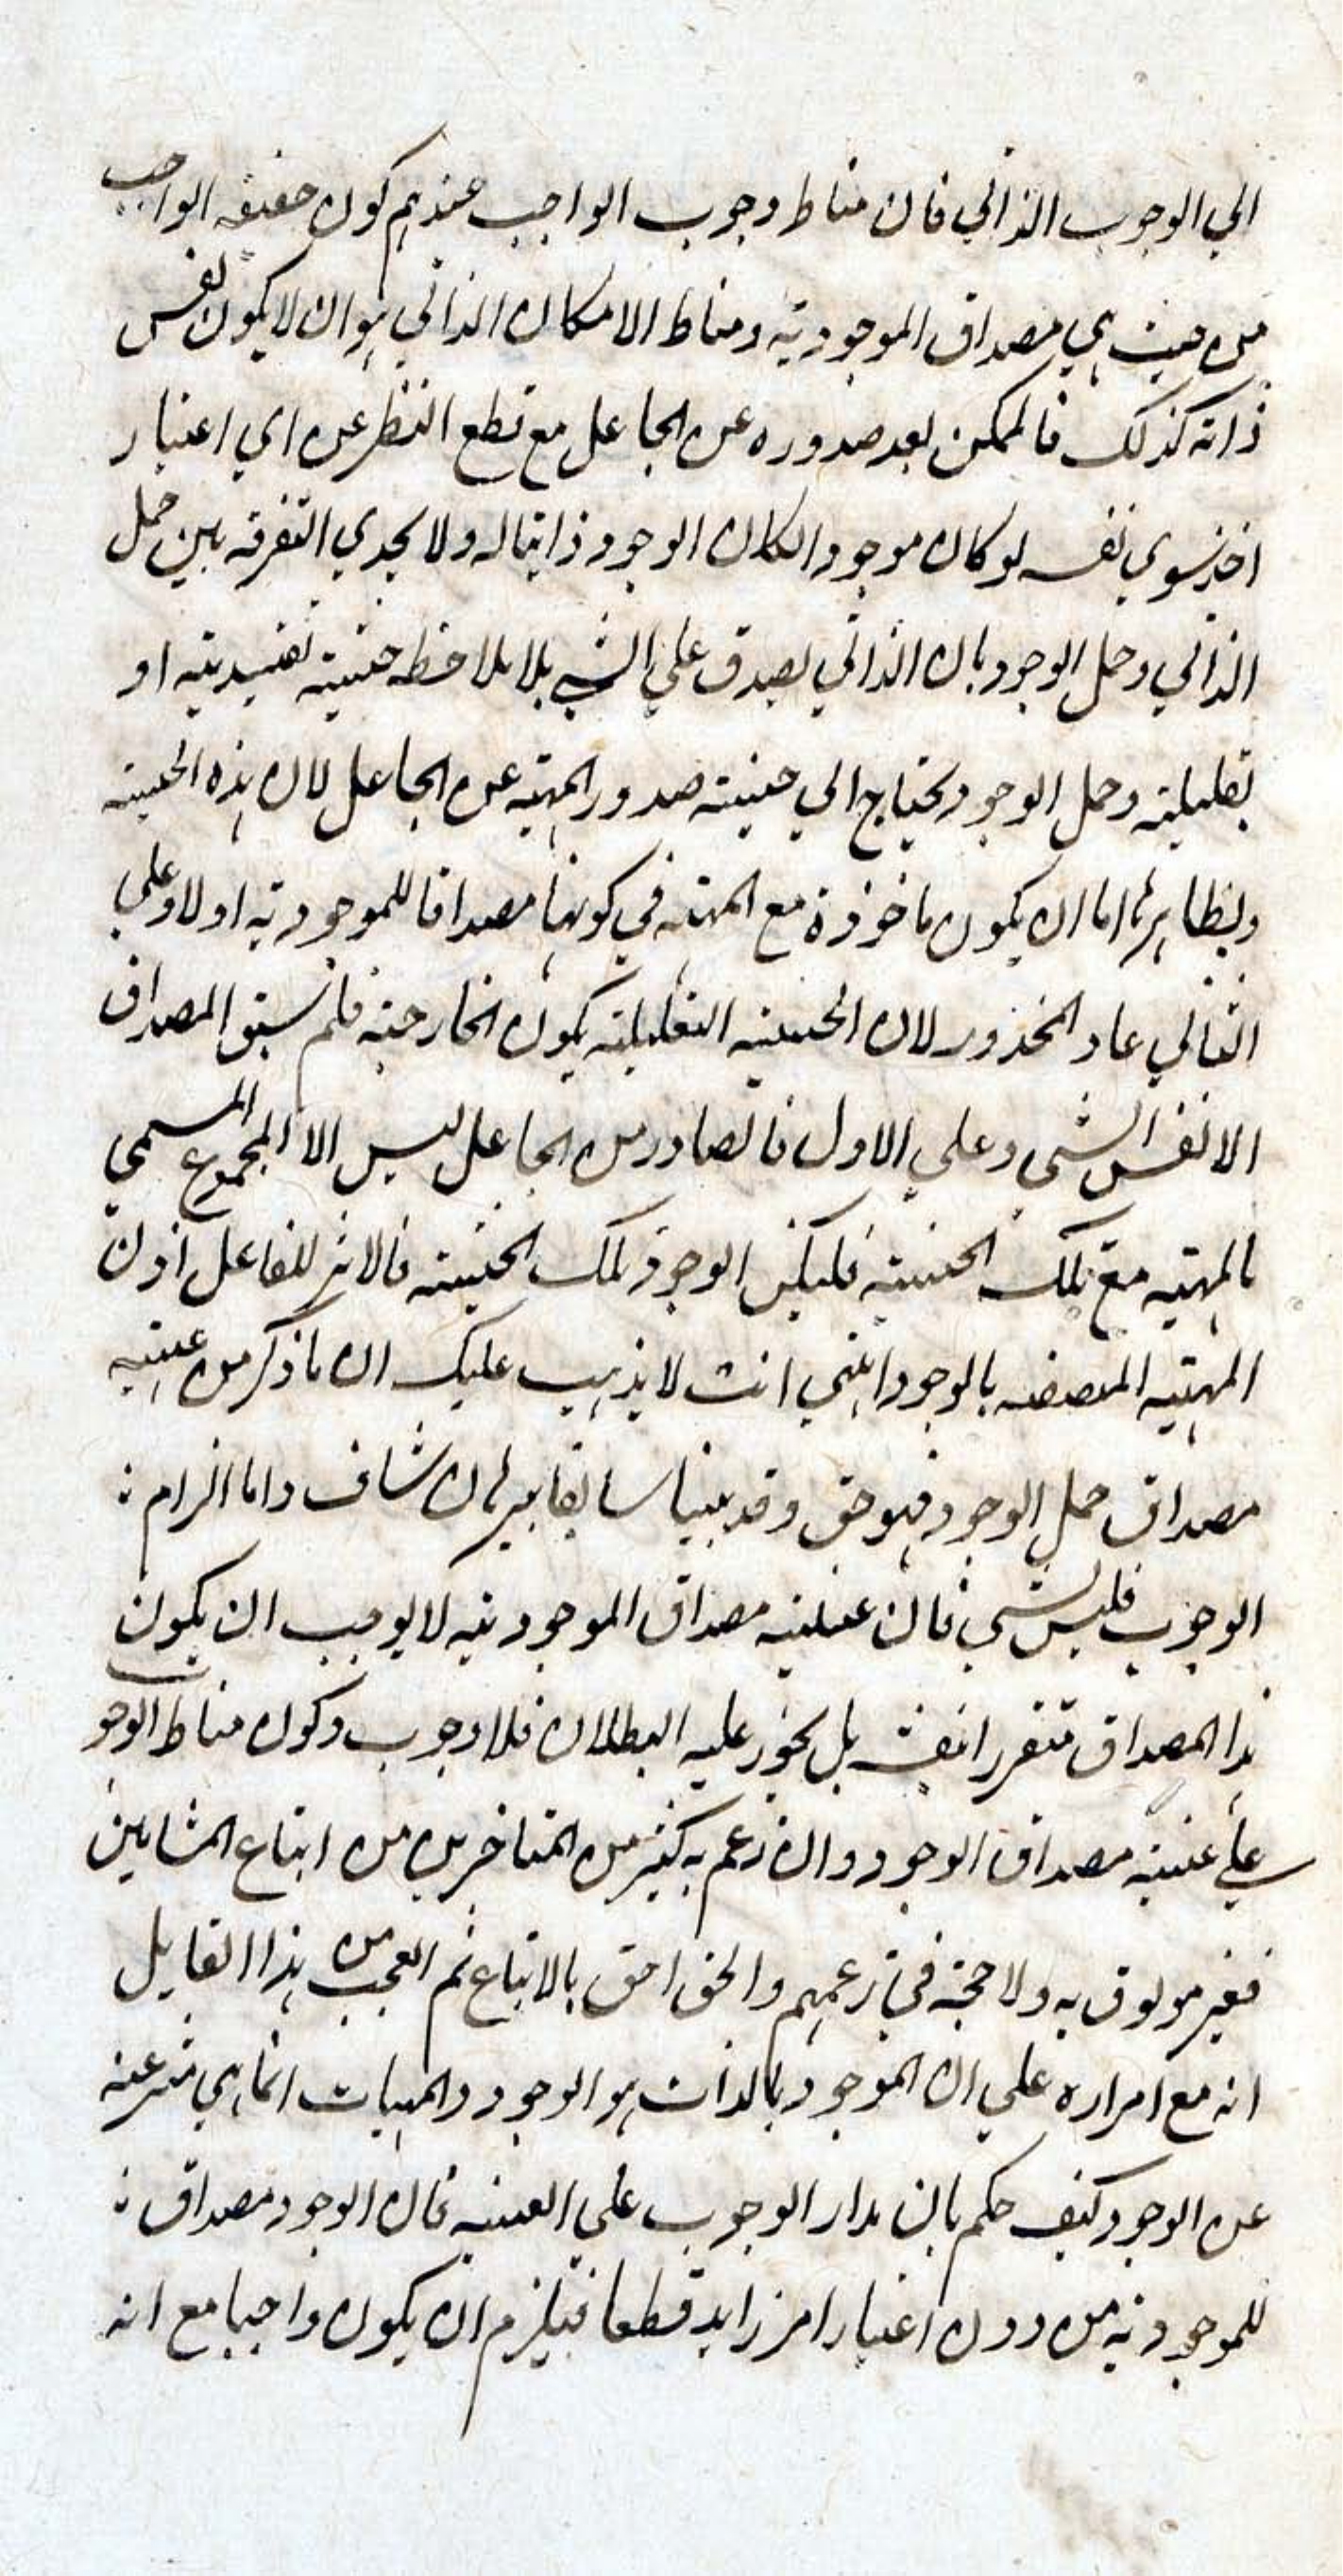 الي الوجوب الذاتي فان مناط وجوب الواجب عندهم كون حقيقه الواجب
من حيث هي مصداق الموجوديه ومناط الامكان الذاتي هو ان لا يكون نفس
ذاته كذلك فالممكن بعد صدوره عن الجاعل مع قطع النظر عن اي اعتبار
اخذ سوي نفسه لو كان موجودا لكان الوجود ذاتيا له ولا يجدي التفرقه بين حمل
الذاتي وحمل الوجود بان الذاتي يصدق علي الشي بلا ملاحظه حيثية تقييديته او
تعليليته وحمل الوجود يحتاج الي حيثيته صدور المهيه عن الجاعل لان هذه الحيثيته
ونظايرها اما ان يكون ماخوذة مع المهيه في كونها مصداقا للموجوديه او لا وعلي
الثاني عاد المحذور لان الحيثيته التعليليته يكون الخارجيته فلم يبق المصداق
الا نفس الشي وعلي الاول فالصادر من الجاعل ليس الا المجموع المسمي
بالمهيه مع تلك الحيثيته فليكن الوجود تلك الحيثيته فالاثر للفاعل اذن
المهيه المتصفه بالوجود انتهي انت لا يذهب عليك ان ما ذكر من عينيه
مصداق حمل الوجود فهو حق وقد بينا سابقا ببرهان شاف واما الزام
الوجوب فليس بشي فان عينيته مصداق الموجوديته لا يوجب ان يكون
هذا المصداق متقررا بنفسه بل يجوز عليه البطلان فلا وجوب وكون مناط الوجوب
علي عينيته مصداق الوجود وان زعم به كثير من المتاخرين من اتباع المشايين
فغير موثوق به ولا حجة في زعمهم والحق احق بالاتباع ثم العجب من هذا القايل
انه مع اصراره علي ان الموجود بالذات هو الوجود والمهيات انما هي منتزعه
عن الوجود كيف حكم بان مدار الوجوب علي العينيه فان الوجود مصداق
للموجوديه من دون اعتبار امر زايد قطعا فيلزم ان يكون واجبا مع انه